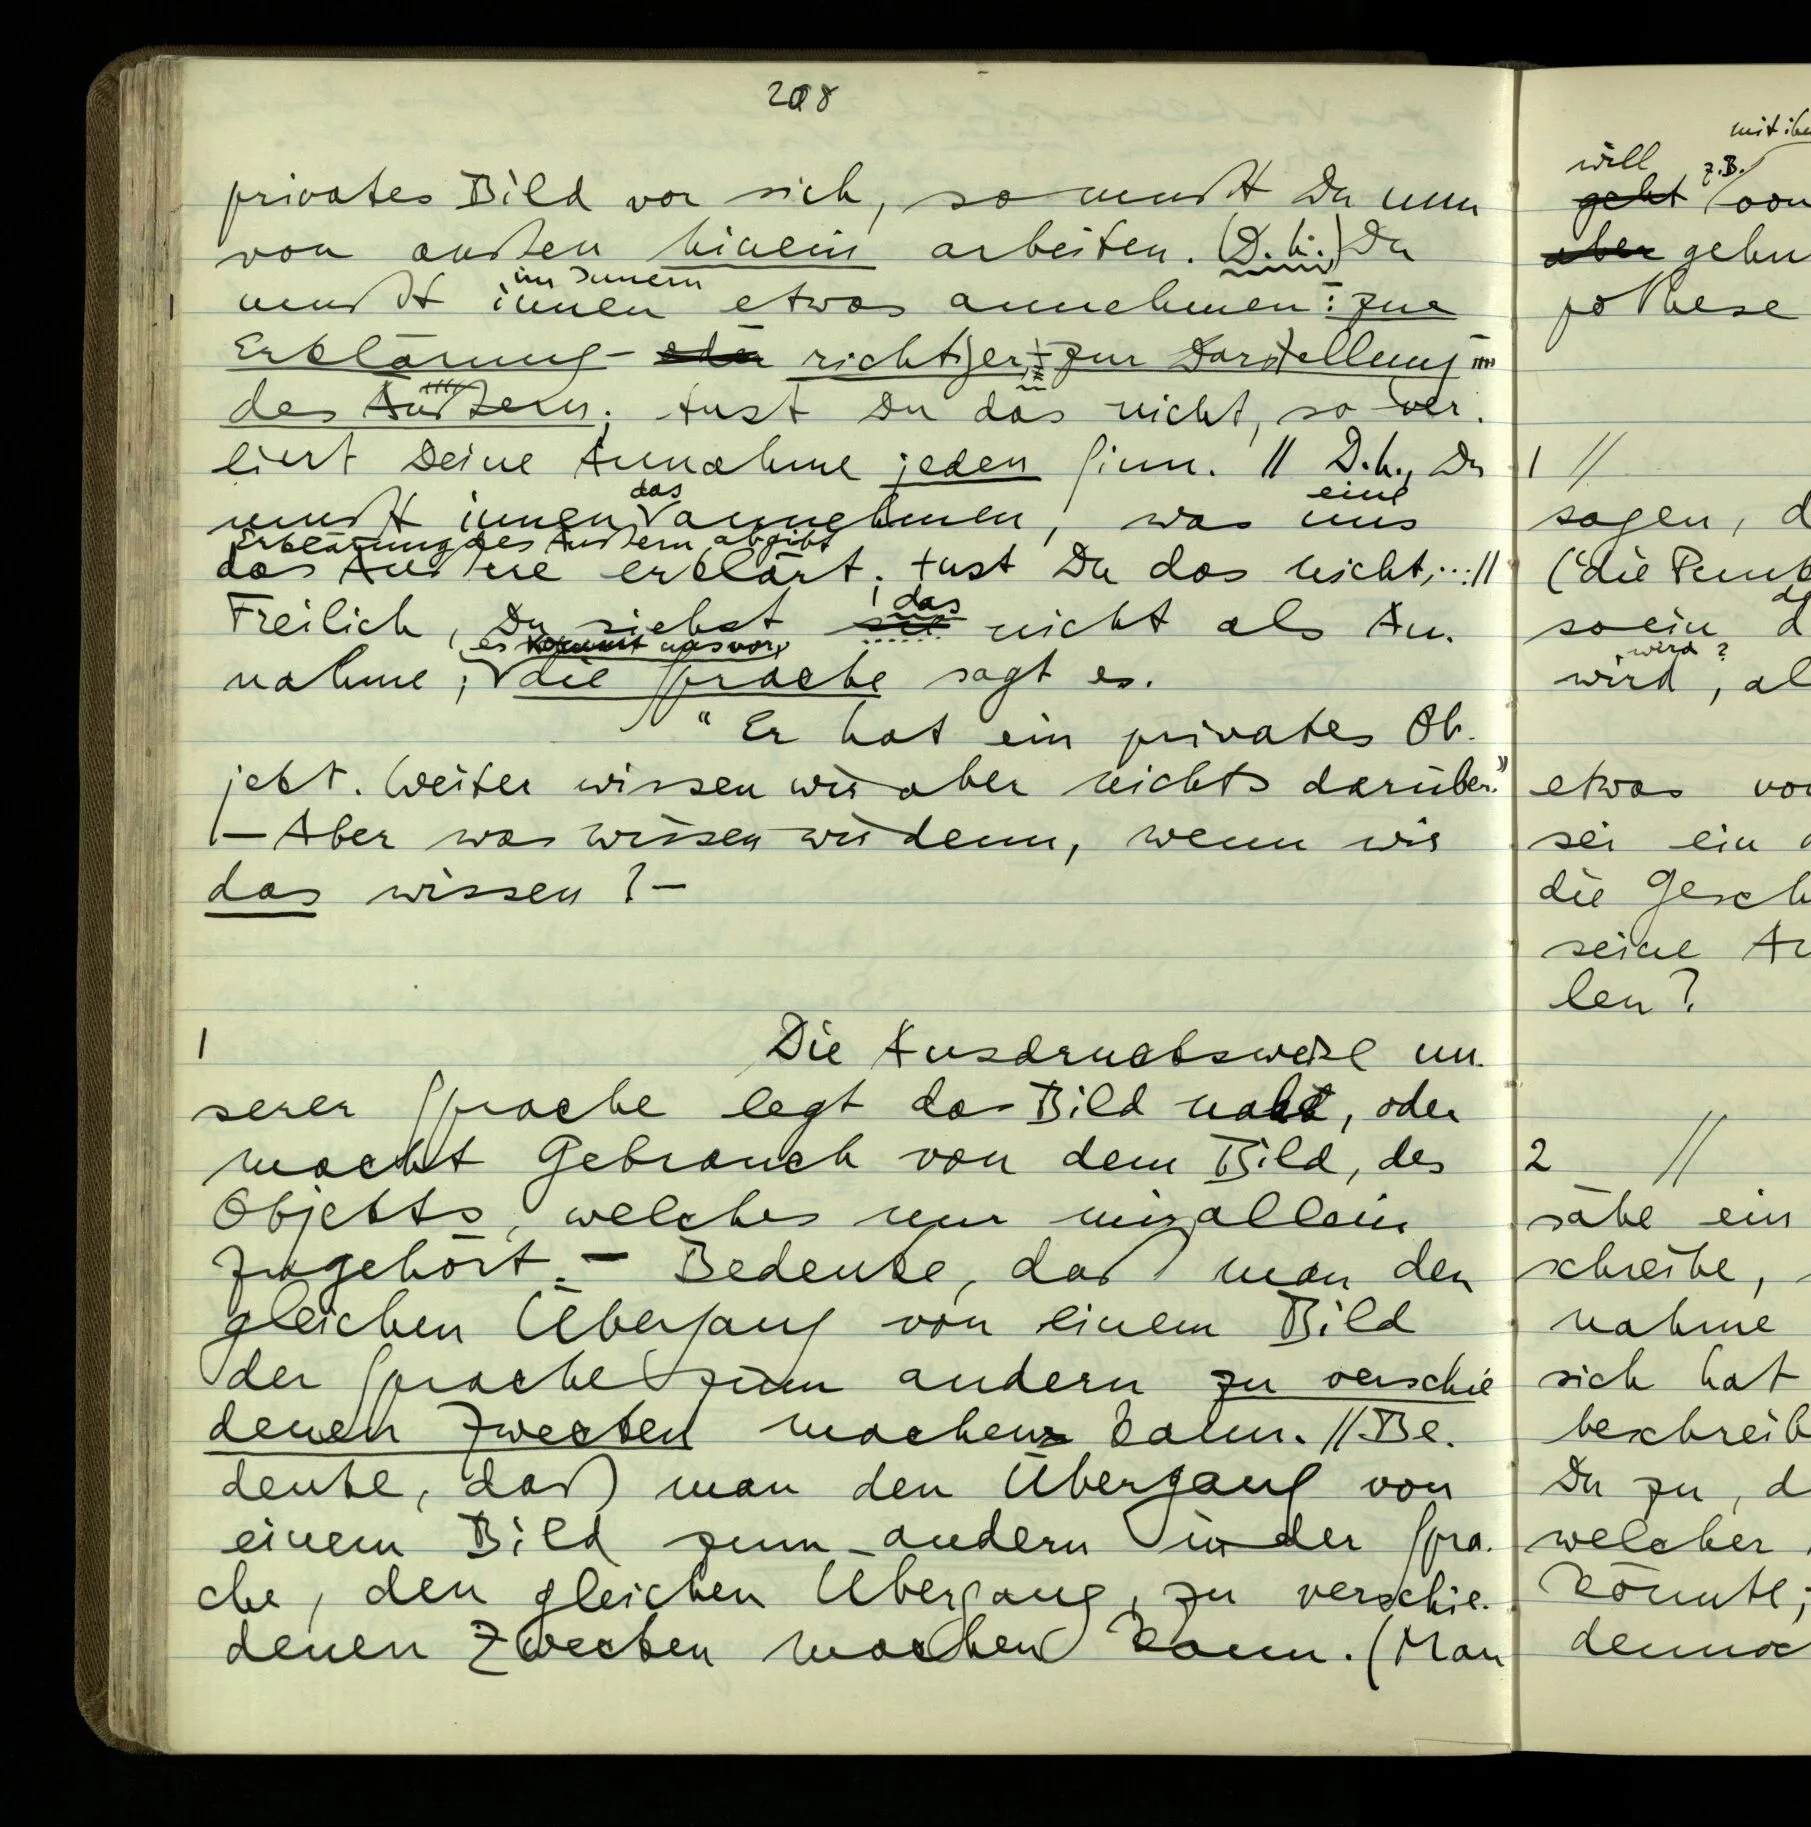 208
privates Bild vor sich, so mußt Du nun
von außen hinein arbeiten. (D.h.) Du
im Innern
mußt innen etwas annehmen: zur
Erklärung – oder richtiger – zur Darstellung –
des Äußern; tust Du das nicht, so ver-
liert Deine Annahme jeden Sinn. // D.h., Du
das eine
mußt innen annehmen, was uns
Erklärung des Äußern abgibt
das Äußere erklärt; tust Du das nicht, ... //
das
Freilich, Du siehst sie nicht als An-
es kommt uns vor,
nahme; die Sprache sagt es.
"Er hat ein privates Ob-
jekt. Weiter wissen wir aber nichts darüber."
– Aber was wissen wir denn, wenn wir
das wissen? –
1
Die Ausdrucksweise un-
serer Sprache legt das Bild nahe, oder
macht Gebrauch von dem Bild, des
Objekts, welches nur mir allein
zugehört. – Bedenke, daß man den
gleichen Übergang von einem Bild
der Sprache zum andern zu verschie
denen Zwecken machen kann. // Be-
denke, daß man den Übergang von
einem Bild zum andern in der Spra-
che, den gleichen Übergang, zu verschie-
denen Zwecken machen kann. (Man
will z.B.
geht von
aber gehn
pothese
1 //
sagen, d
("die Punk
sein d
wird ?
wird, al
etwas vor
sei ein
die Gesch
seine
len?
2 //
sähe ein
schreibe,
nahme
sich hat
beschreib
Du zu, d
welcher
könnte;
dennoc